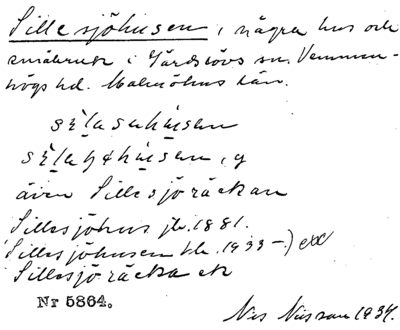 Sillesjöhusen, några hus och
småbruk i Gärdslövs sn. Vemmen-
högs hd. Malmöhus län.
även Sillesjöräckan
Sillesjöhus jb. 1881.
Sillesjöhusen 1933 –) exc
Sillesjöräcka ek
Nr 5864.
Nils Nilsson 1934.